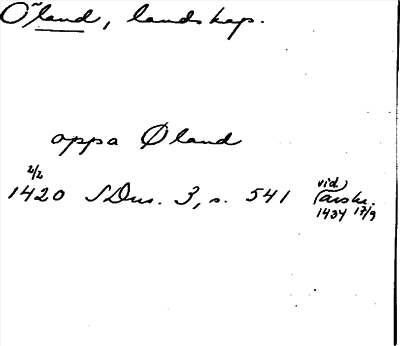 Öland, landskap.
oppa Øland
2/2
1420 SDns. 3, s. 541 vid avskr.
1434 17/9